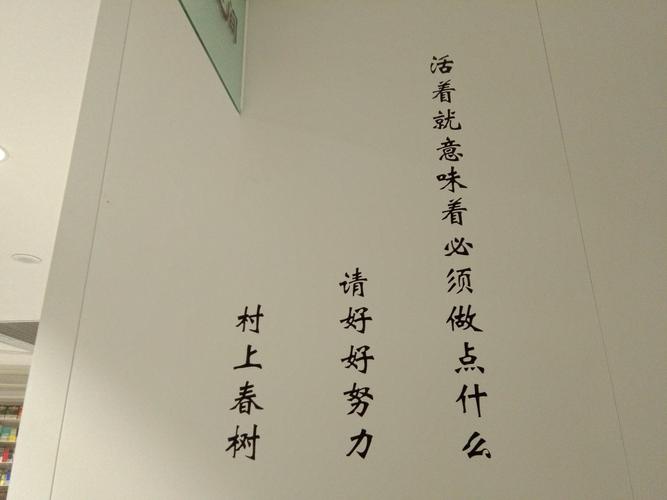 活着就意味着必须做点什么
请好好努力
村上春树